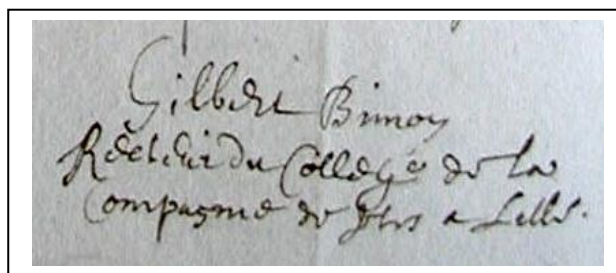 Gilbert Bimon
Recteur du College de la
Compagnie de Jhs a Lille.